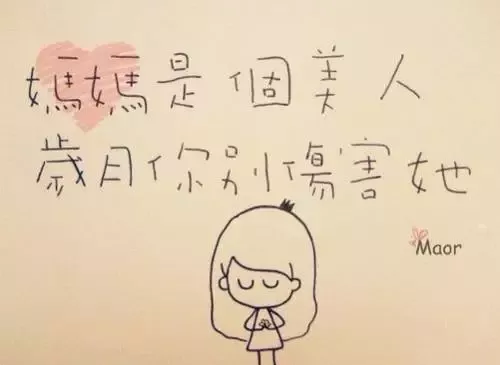 媽媽是個美人
歲月你別傷害她
Maor